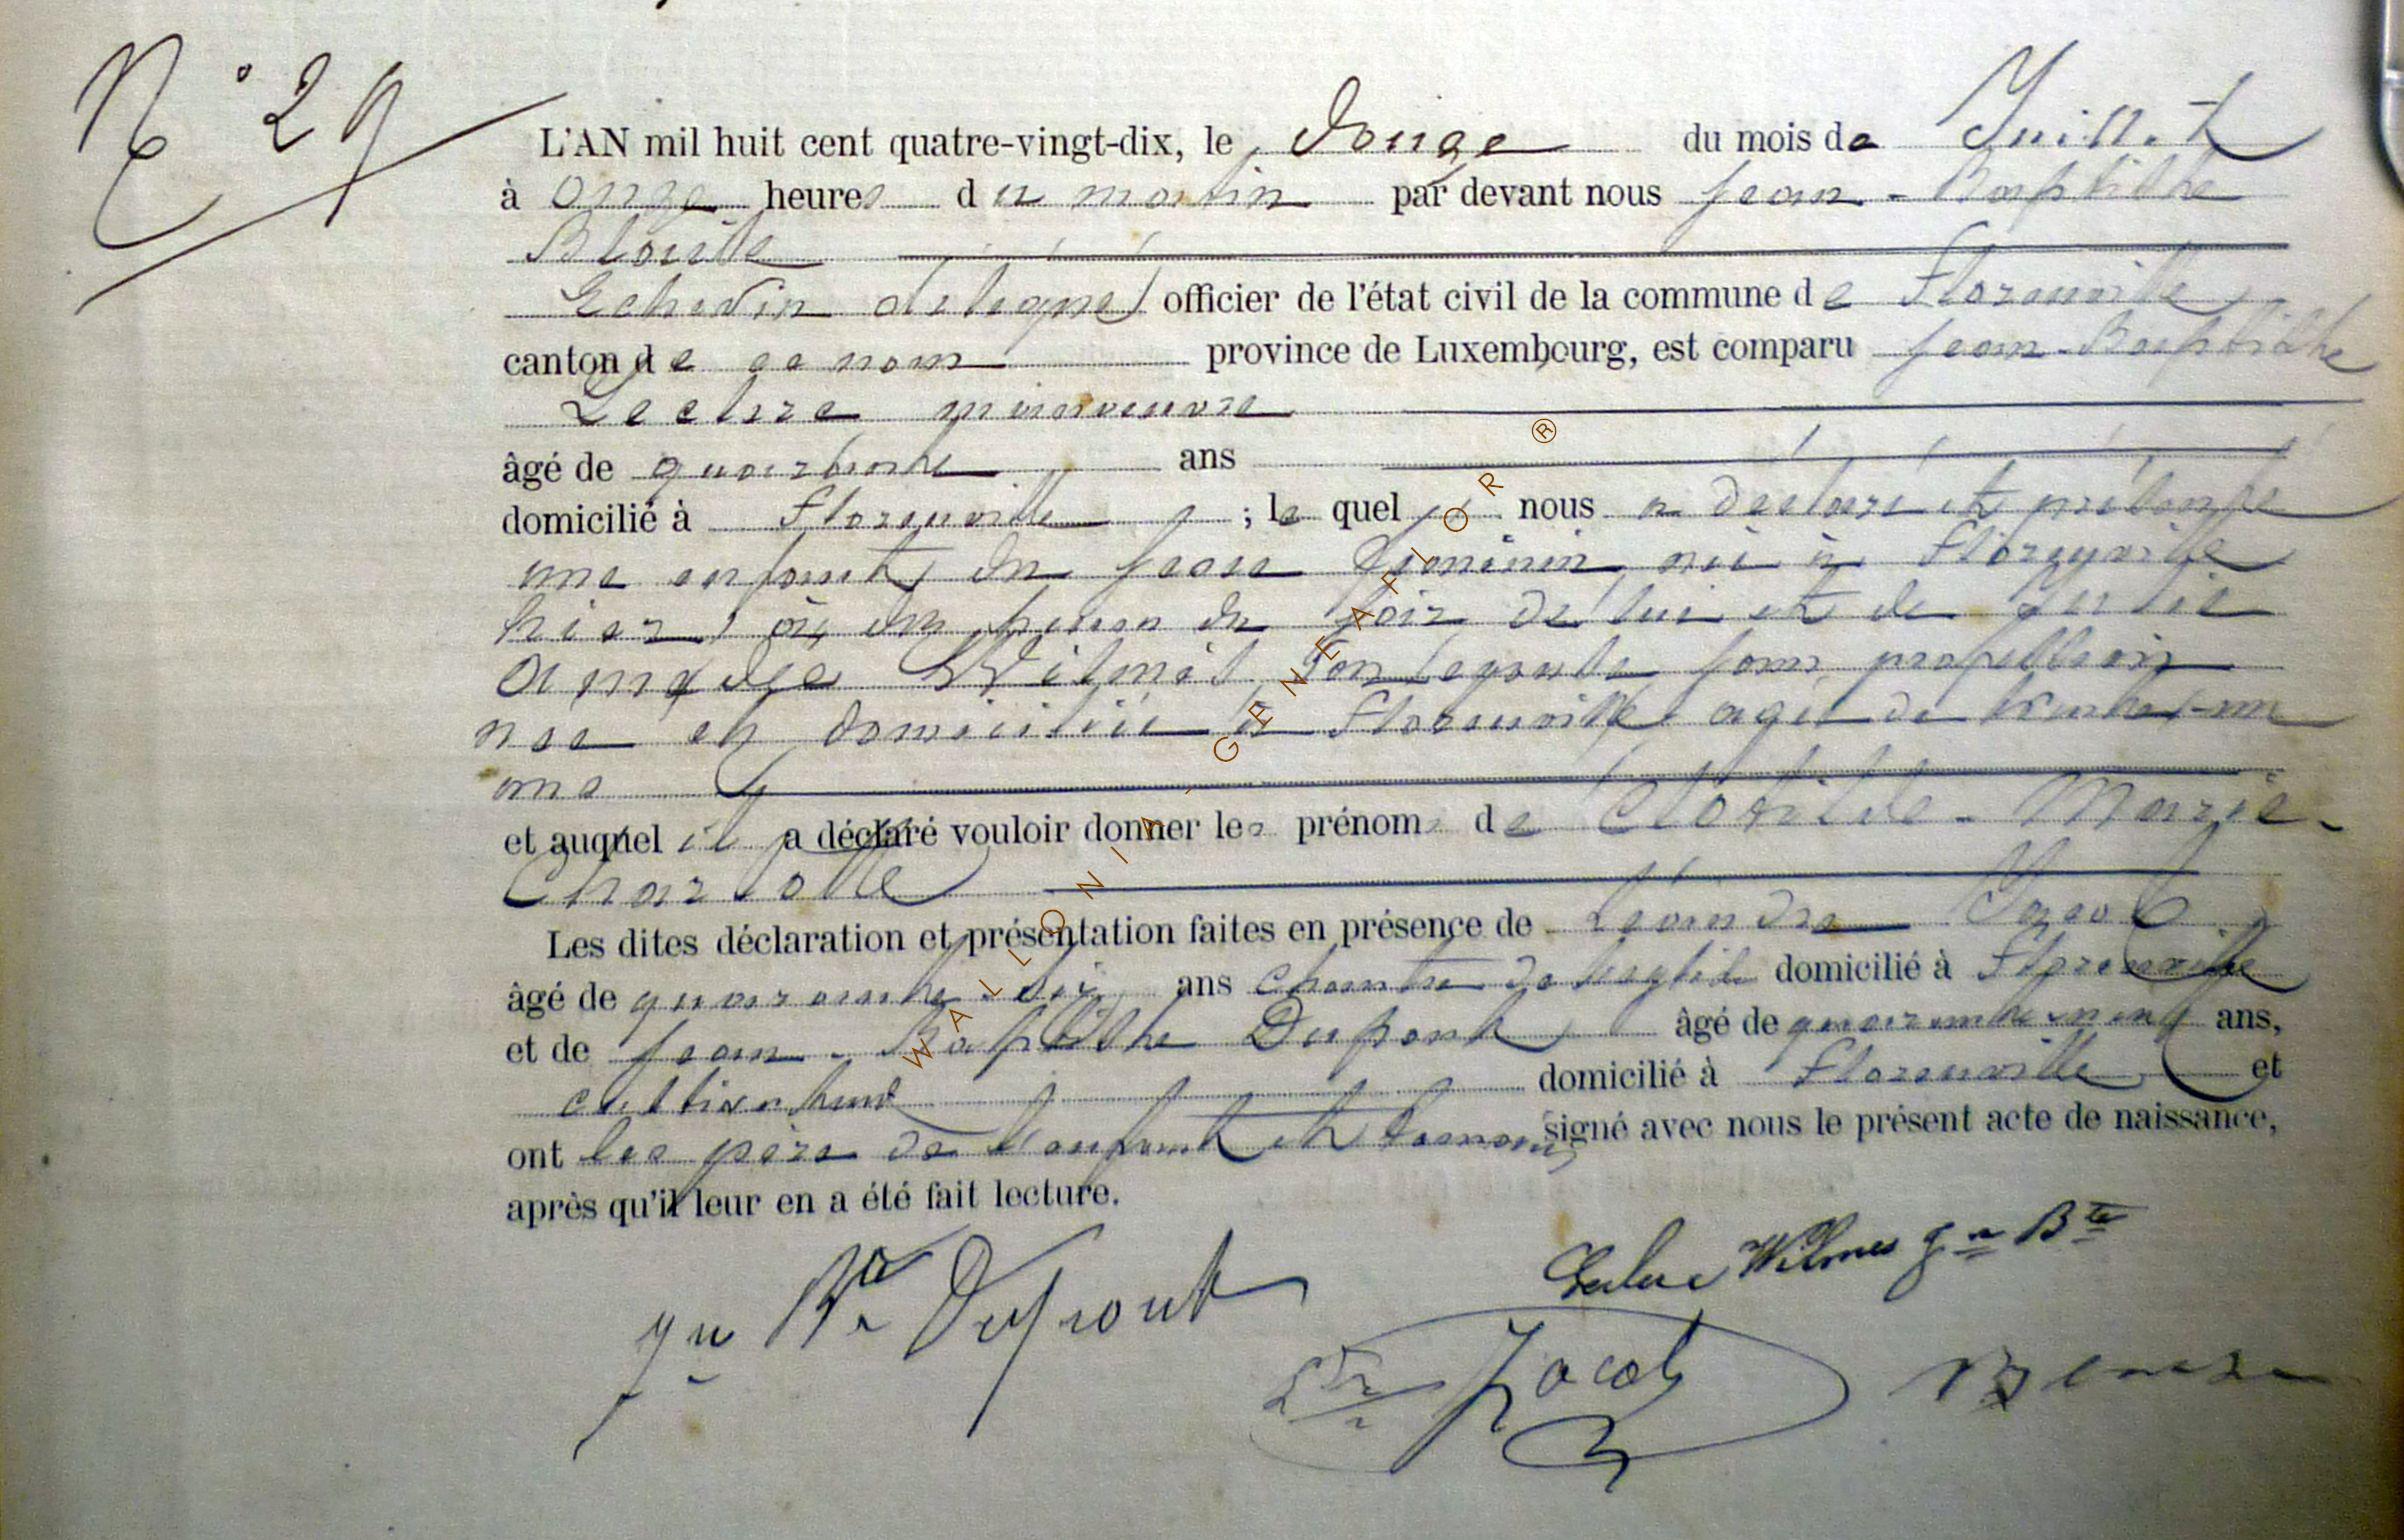 N° 29
L'AN mil huit cent quatre-vingt-dix, le douze du mois de Juillet
à onze heures du matin par devant nous Jean-Baptiste
Blouse
Echevin délégué officier de l'état civil de la commune de Florenville
canton de ce nom province de Luxembourg, est comparu Jean-Baptiste
Leclere manoeuvre
âgé de quarante ans
domicilié à Florenville ; le quel nous a déclaré et présenté
une enfant du sexe féminin né à Florenville
hier à heures du soir de lui et de Julie
Wilmes son épouse sans profession
née et domiciliée à Florenville agée de trente-un
ans
et auquel il a déclaré vouloir donner les prénoms de Clotilde-Marie-
Charlotte
Les dites déclaration et présentation faites en présence de Léandre Jacob
âgé de quarante-six ans chantre de l'église domicilié à Florenville
et de Jean-Baptiste Dupont âgé de quarante-neuf ans,
cultivateur domicilié à Florenville et
ont les père de l'enfant et témoins signé avec nous le présent acte de naissance,
après qu'il leur en a été fait lecture.
Wilmes Jn Bte
Jn Bte Dupont
Jacob
WALLONIA-GENEAFLOR ®